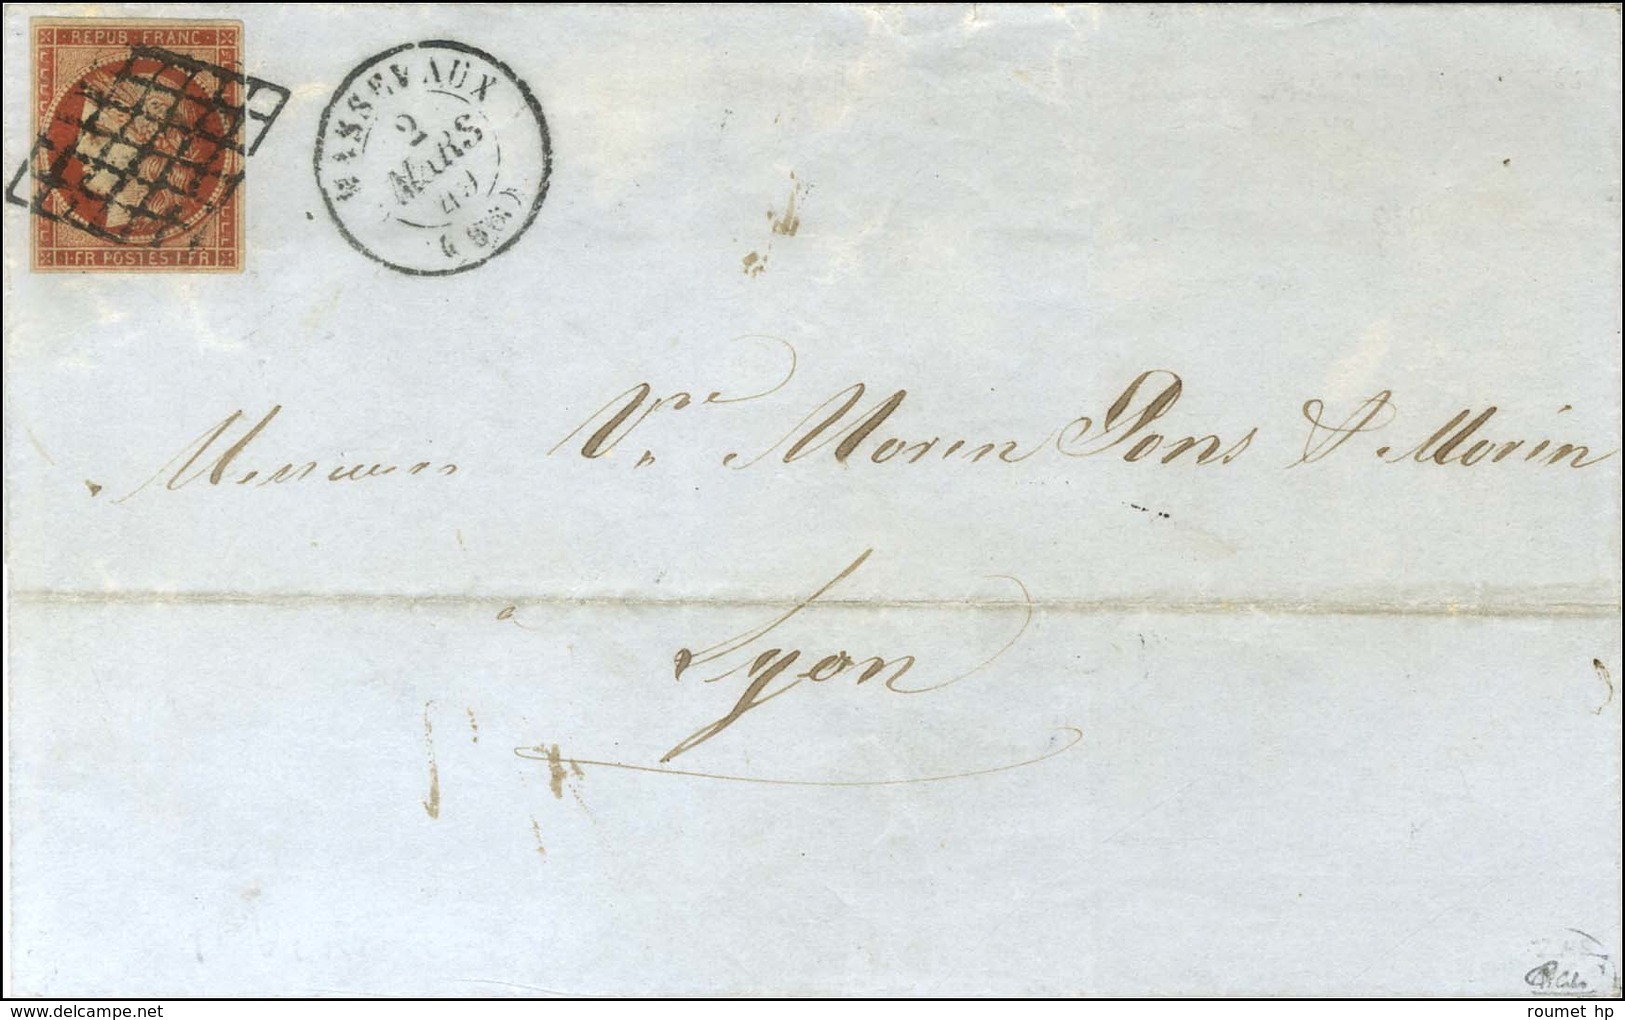 REPUB FRANC
1 FR POSTES 1 FR
MASSEVAUX
2
MARS
49
(66)
Messieurs Vve Morin Pons & Morin
à
Lyon
roumet hp